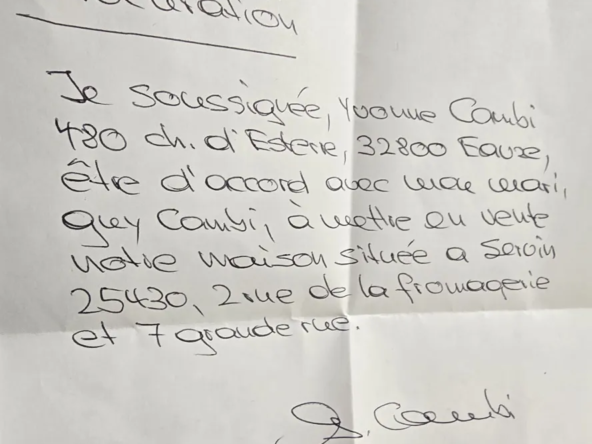 Je soussignée, Yvonne Cambi
480 ch. d'Esterre, 32800 Eauze,
être d'accord avec mon mari,
guy Cambi, à mettre en vente
notre maison située a Servin
25430, 2 rue de la fromagerie
et 7 grande rue.
Cambi